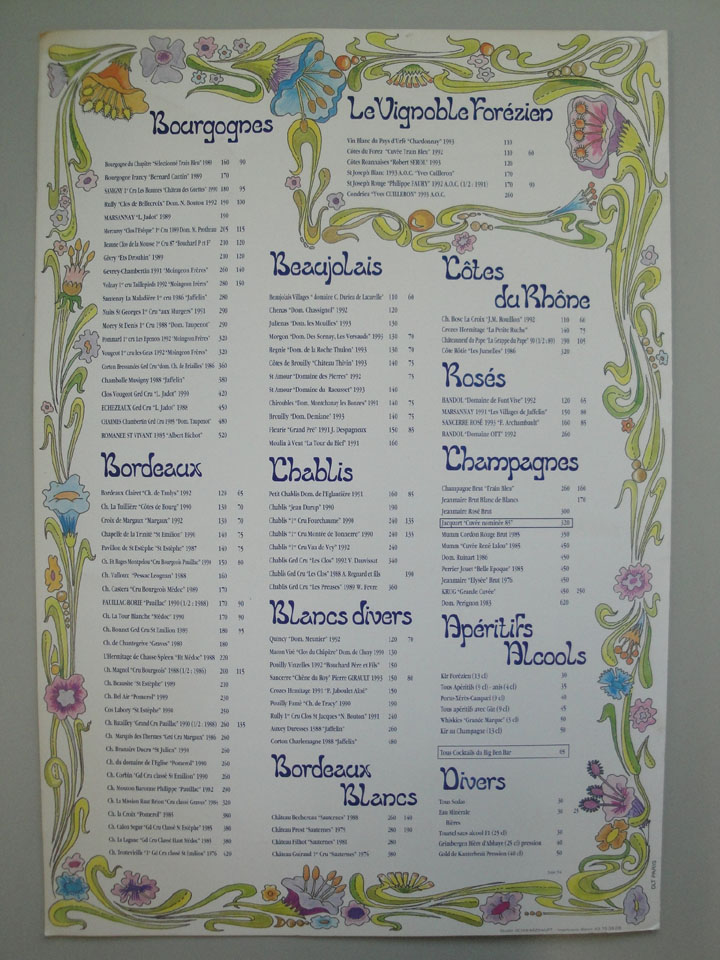 Bourgognes
Bourgogne du Chapitre "Sélectionné Train Bleu" 1989 160 90
Bourgogne Irancy "Bernard Cantin" 1989 170
SAVIGNY 1er Cru Les Bonnets "Château des Guettes" 1991 180 95
Rully "Clos de Bellecroix" Dom. N. Bouton 1992 190 100
MARSANNAY "L. Jadot" 1989 190
Mercurey "Clos l'Evêque" 1er Cru 1989 Dom. N. Protheau 205 115
Beaune Clos de la Mousse 1er Cru 87 "Bouchard P et F" 210 120
Givry "Ets Drouhin" 1989 210 120
Gevrey-Chambertin 1991 "Moingeon Frères" 260 140
Volnay 1er cru Taillepieds 1992 "Moingeon Frères" 280 150
Santenay La Maladière 1er cru 1986 "Jaffelin" 280
Nuits St Georges 1er Cru "aux Murgers" 1991 290
Morey St Denis 1er Cru 1988 "Dom. Taupenot" 290
Pommard 1er cru Les Epenots 1992 "Moingeon Frères" 320
Vougeot 1er cru les Gras 1992 "Moingeon Frères" 320
Corton Bressandes Grd Cru 1986 360
Chambolle Musigny 1988 "Jaffelin" 380
Clos Vougeot Grd Cru "L. Jadot" 1991 420
ECHEZEAUX Grd Cru "L. Jadot" 1988 450
CHARMES Chambertin Grd Cru 1988 "Dom. Taupenot" 480
ROMANEE ST VIVANT 1985 "Albert Bichot" 520
Bordeaux
Bordeaux Clairet "Ch. de Taulys" 1992 120 65
Ch. La Tuilière "Côtes de Bourg" 1990 130 70
Croix de Margaux "Margaux" 1992 130 70
Chapelle de la Trinité "St Emilion" 1991 140 75
Pavillon de St Estèphe "St Estèphe" 1987 140 75
Ch. Et Hages Montpelou "Cru Bourgeois Pauillac" 1991 150 80
Ch. Valloux "Pessac Léognan" 1988 160
Ch. Castera "Cru Bourgeois Médoc" 1989 170
PAUILLAC-BORIE "Pauillac" 1990 (1/2 : 1988) 170 90
Ch. La Tour Blanche "Médoc" 1990 170 90
Ch. Bonnet Grd Cru St Emilion 1991 180 95
Ch. de Chantegrive "Graves" 1985 180
L'Hermitage de Chasse-Spleen "Ht Médoc" 1988 220
Ch. Magnol "Cru Bourgeois" 1988 (1/2 : 1986) 210 115
Ch. Beausite "St Estèphe" 1989 210
Ch. Bel Air "Pomerol" 1989 230
Cos Labory "St Estèphe" 1990 250
Ch. Batailley "Grand Cru Pauillac" 1990 (1/2 : 1988) 260 135
Ch. Marquis des Thermes "Grd Cru Margaux" 1986 260
Ch. Branaire Ducru "St Julien" 1991 260
Ch. du domaine de l'Eglise "Pomerol" 1990 260
Ch. Corbin "Gd Cru classé St Emilion" 1990 260
Ch. Mouton Baronne Philippe "Pauillac" 1992 290
Ch. La Mission Haut Brion "Cru classé Graves" 1986 320
Ch. la Croix "Pomerol" 1985 380
Ch. Calon Segur "Gd Cru Classé St Estèphe" 1985 380
Ch. La Lagune "Gd Cru Classé Haut Médoc" 1985 380
Ch. Trottevieille "1er Gd Crs classé St Emilion" 1976 420
Le Vignoble Forézien
Vin Blanc du Pays d'Urfé "Chardonnay" 1993 110
Côtes du Forez "Cuvée Train Bleu" 1992 110 60
Côtes Roannaises "Robert SEROL" 1993 120
St Joseph Blanc 1993 A.O.C. "Yves Cuilleron" 170
St Joseph Rouge "Philippe FAURY" 1992 A.O.C (1/2 : 1991) 170 90
Condrieu "Yves CUILLERON" 1993 A.O.C. 260
Beaujolais
Beaujolais Villages "domaine C. Durieu de Lacarelle" 110 60
Chenas "Dom. Chassignol" 1992 120
Julienas "Dom. les Mouilles" 1993 130
Morgon "Dom. Des Sornay, Les Versauds" 1993 130 70
Regnié "Dom. de la Roche Thulon" 1993 130 70
Côtes de Brouilly "Château Thivin" 1993 140 75
St Amour "Domaine des Pierres" 1992 75
St Amour "Domaine du Ravouset" 1993 140
Chiroubles "Dom. Montchanay les Bonnes" 1991 140 75
Brouilly "Dom. Demiane" 1993 140 75
Fleurie "Grand Pré" 1991 J. Despagneux 150 85
Moulin à Vent "La Tour du Bief" 1991 160
Chablis
Petit Chablis Dom. de l'Eglantière 1991 160 85
Chablis "Jean Durup" 1990 190
Chablis "1er Cru Fourchaume" 1990 240 135
Chablis "1er Cru Montée de Tonnerre" 1990 240 135
Chablis 1er Cru Van de Vey" 1992 240
Chablis Grd Cru "Les Clos" 1992 V. Dauvissat 340
Chablis Grd Cru "Les Clos" 1988 A. Regnard et fils 190
Chablis Grd Cru "Les Preuses" 1989 W. Fevre 360
Blancs divers
Quincy "Dom. Meunier" 1992 120 70
Macon Visé "Clos du Châpitre" Dom. de Chuny 1990 130
Pouilly Vinzelles 1992 "Bouchard Père et Fils" 150
Sancerre "Chêne du Roy" Pierre GIRAULT 1993 150 80
Crozes Hermitage 1991 "P. Jaboulet Aîné" 150
Pouilly Fumé "Ch. de Tracy" 1990 190
Rully 1er Cru Clos St Jacques "N. Bouton" 1991 240
Auxey Duresses 1988 "Jaffelin" 260
Corton Charlemagne 1988 "Jaffelin" 480
Bordeaux
Blancs
Château Bechereau "Sauternes" 1988 260 140
Château Prost "Sauternes" 1975 280 190
Château Filhot "Sauternes" 1981 280
Château Guiraud 1er Cru "Sauternes" 1976 380
Côtes
du Rhône
Ch. Bosc La Croix "J.M. Nouillon" 1992 110 60
Crozes Hermitage "La Petite Ruche" 140 75
Châteauneuf du Pape "La Grappe du Pape" 90 (1/2 : 89) 190 105
Côte Rôtie "Les Jumelles" 1986 320
Rosés
BANDOL "Domaine de Font Vive" 1992 120 65
MARSANNAY 1991 "Les Villages de Jaffelin" 150 80
SANCERRE ROSÉ 1993 "F. Archambault" 160 85
BANDOL "Domaine OTT" 1992 260
Champagnes
Champagne Brut "Train Bleu" 260 160
Jeanmaire Brut Blanc de Blancs 170
Jeanmaire Rosé Brut 300
Jacquart "Cuvée nominée 85" 320
Mumm Cordon Rouge Brut 1985 350
Mumm "Cuvée René Lalou" 1985 450
Dom. Ruinart 1986 450
Perrier Jouet "Belle Epoque" 1985 450
Jeanmaire "Elysée" Brut 1976 450
KRUG "Grande Cuvée" 450 250
Dom. Perignon 1983 620
Apéritifs
Alcools
Kir Forézien (13 cl) 30
Tous Apéritifs (9 cl) - anis (4 cl) 35
Porto-Xérès-Campari (9 cl) 40
Tous apéritifs avec Gin (9 cl) 45
Whiskies "Grande Marque" (5 cl) 50
Kir au Champagne (13 cl) 50
Tous Cocktails du Big Ben Bar 65
Divers
Tous Sodas 30
Eau Minérale 30 25
Bières
Tourtel sans alcool E1 (25 cl) 30
Grimbergen Bière d'Abbaye (25 cl) pression 40
Gold de Kanterbrau Pression (40 cl) 50
DLT PARIS